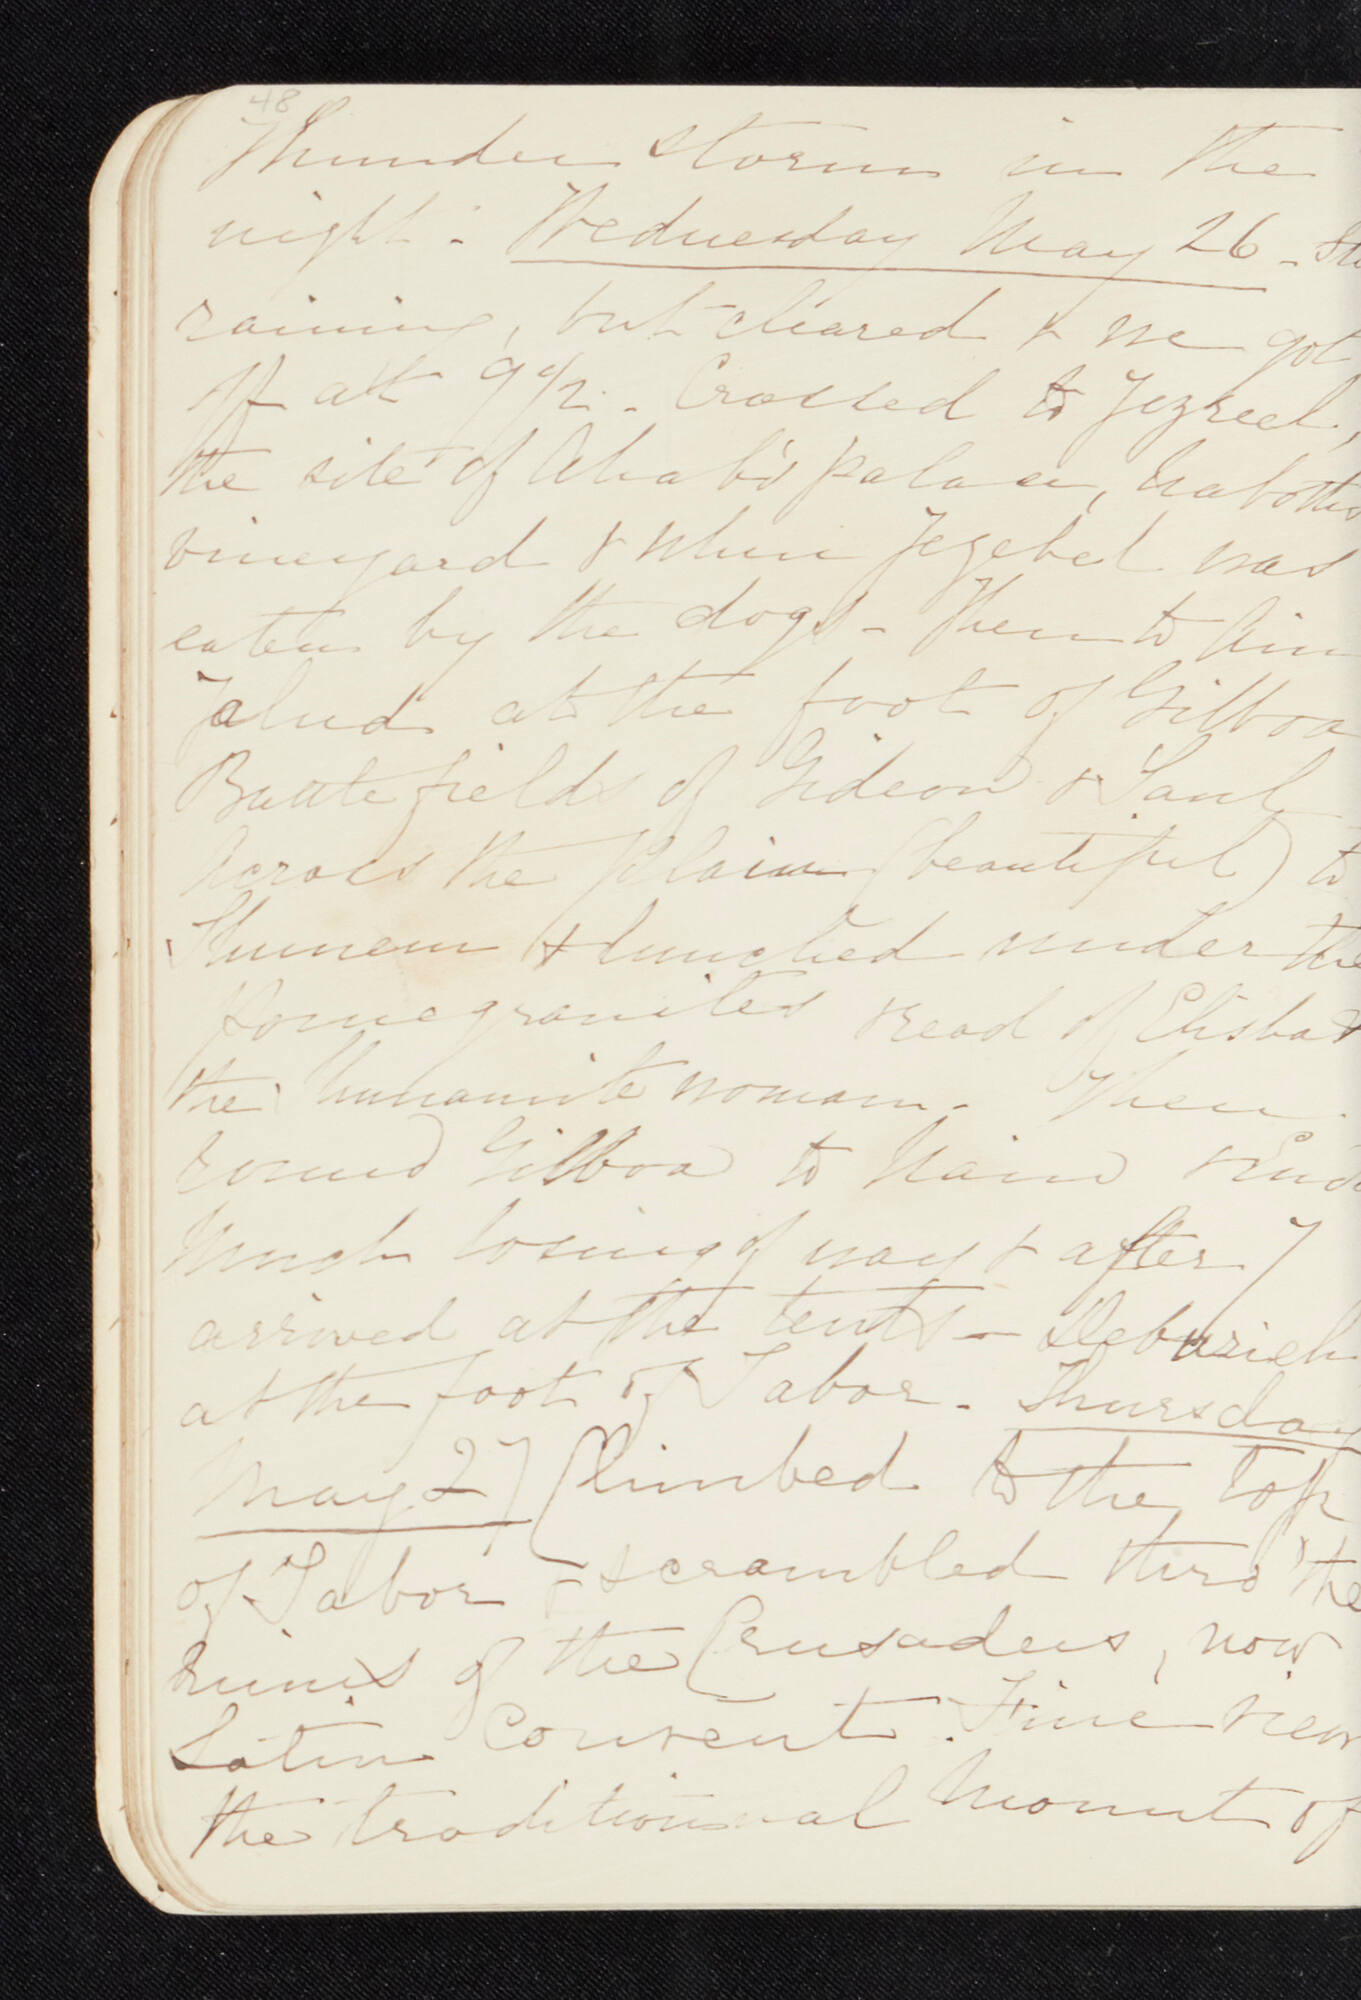 48
Thunder storm in the
night. Wednesday May 26 -
raining, but cleared & we got
off at 9 1/2. Crossed to Jezreel,
the site of Ahab's palace, Naboths
vineyard & where Jezebel was
eaten by the dogs - Then to Ain
Jalud at the foot of Gilboa
Battle fields of Gideon & Saul
Across the plain (beautiful) to
Shunem & lunched under the
pomegranites & read of Elisha &
the Shunamite woman. Then
round Gilboa to Nain &
Much losing of way & after 7
arrived at the tents - Deburieh
at the foot of Tabor. Thursday
May 27 Climbed to the top
of Tabor & scrambled thro' the
ruins of the Crusaders, now
Latin Convent. Fine view
the traditional Mount of